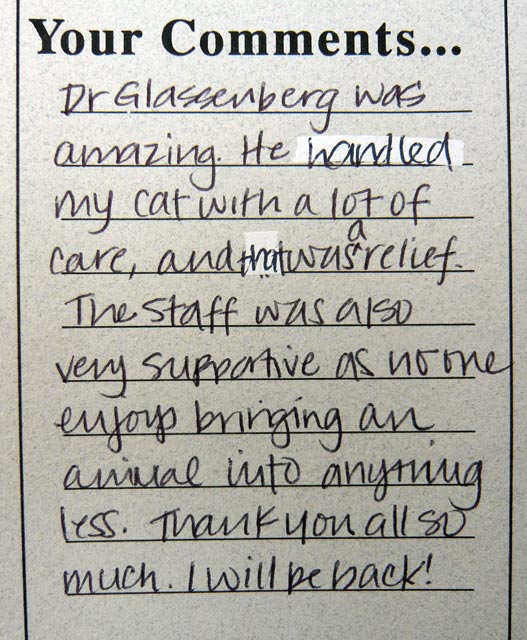 Your Comments...
Dr Glassenberg was
amazing. He handled
my cat with a lot of
care, and that was a relief.
The staff was also
very supportive as no one
enjoys bringing an
animal into anything
less. Thank you all so
much. I will be back!